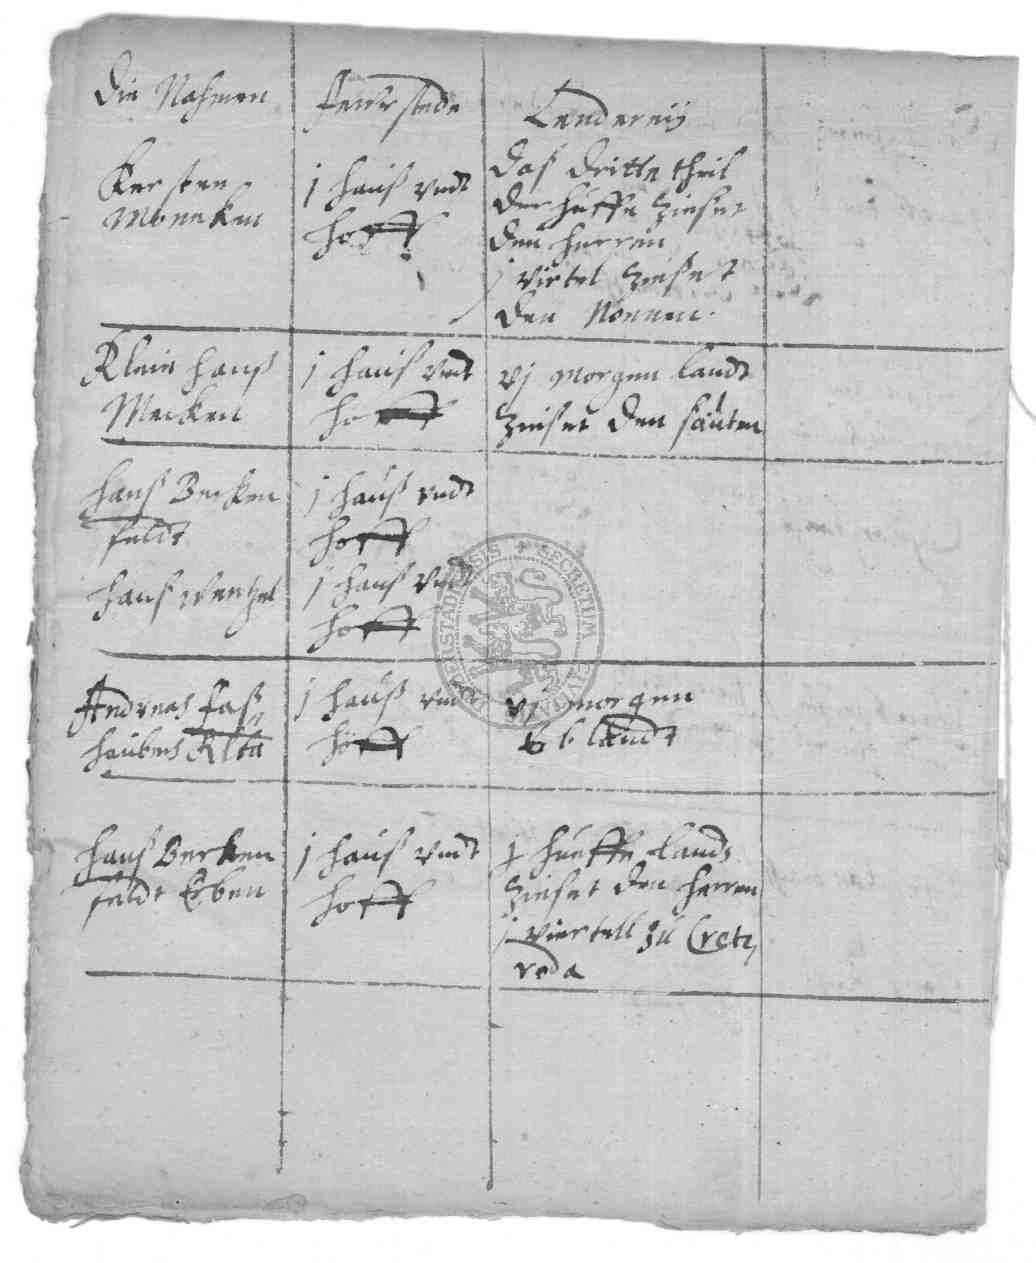 Die Nahmen
Feurstede
Lendereij
Kersten
Moneken
j hauß vndt
hoff
Daß dritte theil
der huffe Zinset
den herren
j virtel Zinset
den Nonnen.
Klein hanß
Mecken
j hauß vndt
hoff
vj Morgen landt
Zinset den
hanß Berken
feldt
j hauß vndt
hoff
hanß Wentzel
j hauß vndt
hoff
Andreas Faß
j hauß vndt
hoff
vj morgen
landt
hanß Berken
feldt Erben
j hauß vndt
hoff
hueffe landt
Zinset den herren
j viertell zu Cretz
roda
SECRETUM CIVITATIS DUDERSTADENSIS